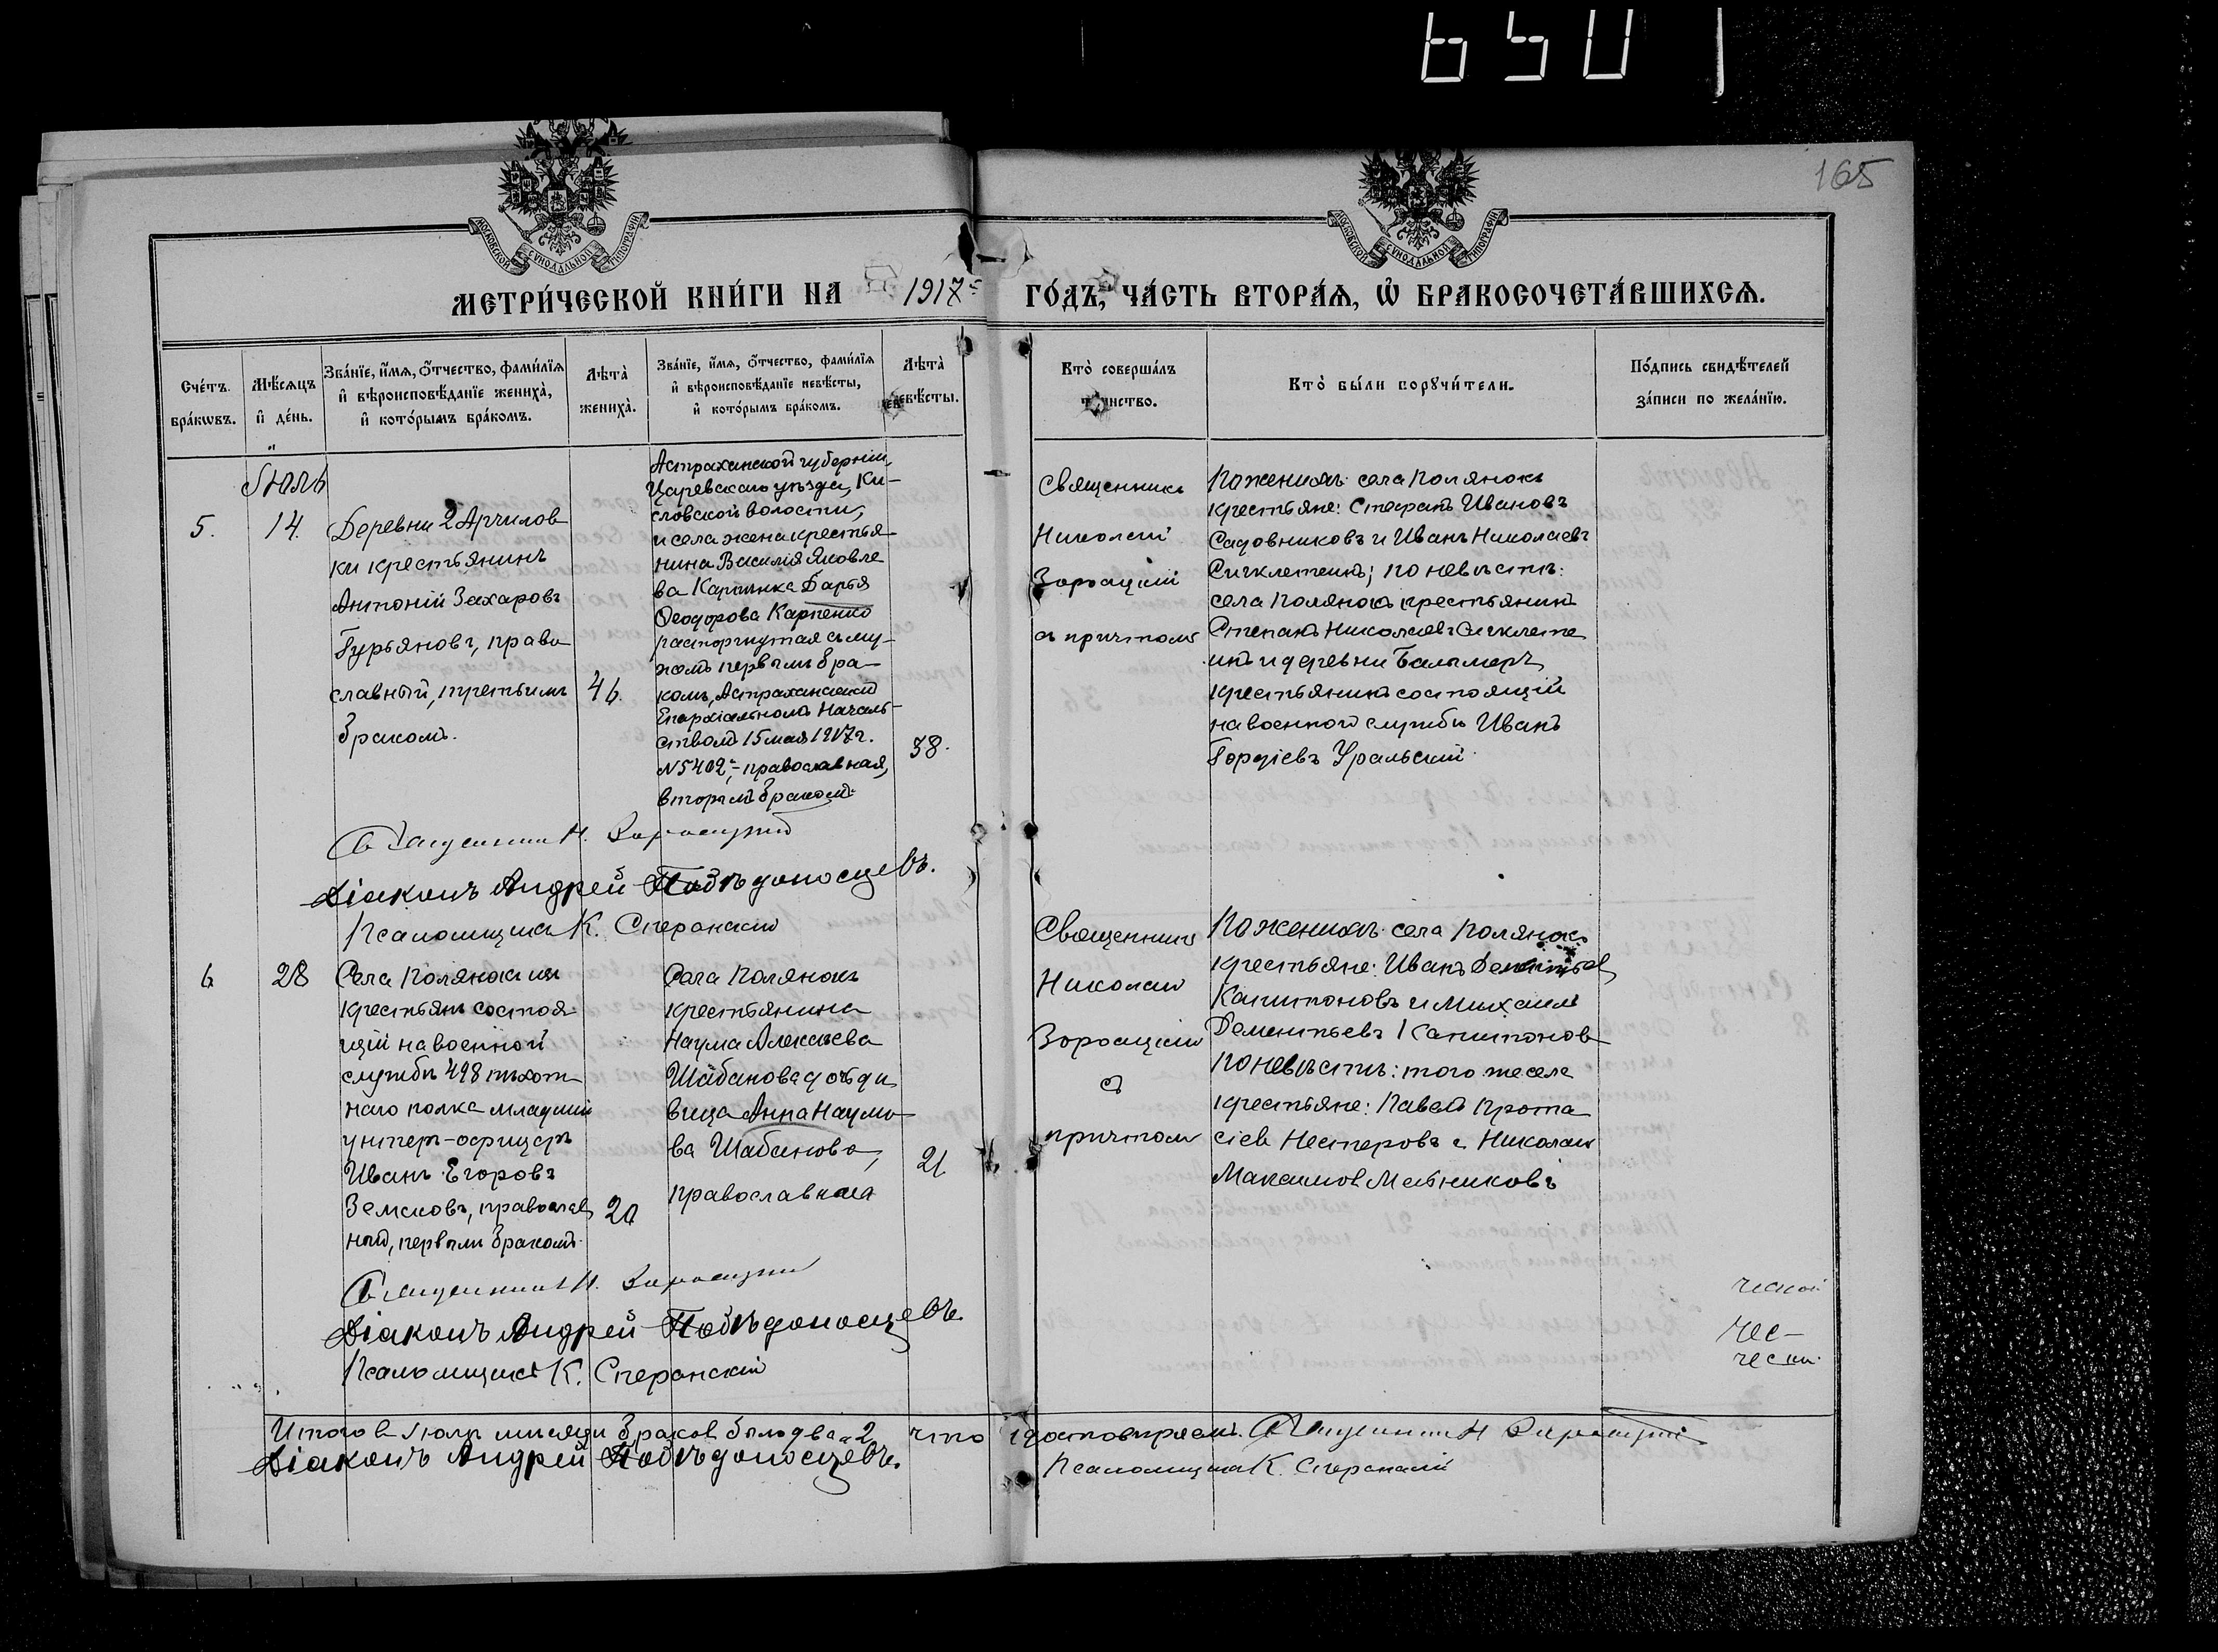 6501
165
МОСКОВСКОЙ СѴНОДАЛЬНОЙ ТИПОГРАФІИ
МОСКОВСКОЙ СѴНОДАЛЬНОЙ ТИПОГРАФІИ
МЕТРИ́ЧЕСКОЙ КНИ́ГИ НА 1917 ГО́ДЪ, ЧА́СТЬ ВТОРА́Я, Ѽ БРАКОСОЧЕТА́ВШИХСЯ.
Сче́тъ бра́кѡвъ.
Мѣ́сяцъ и҆ де́нь.
Зва́нїе, и҆́мя, ѻ҆́тчество, фами́лїя
и҆ вѣроисповѣ́данїе жениха̀,
и҆ кото́рымъ бра́комъ.
Лѣта̀
жениха̀.
Зва́нїе, и҆́мя, ѻ҆́тчество, фами́лїя
и҆ вѣроисповѣ́данїе невѣ́сты,
и҆ кото́рымъ бра́комъ.
Лѣта̀
невѣ́сты.
Кто̀ соверша́лъ
таинство.
Кто̀ бы́ли порꙋчи́тели.
По́дпись свидѣ́телей
за́писи по жела́нїю.
Іюль
5.
14.
Деревни 2 Арчилов
ки крестьянинъ
Антоній Захаровъ
Гурьяновъ, право
славный, третьимъ
бракомъ.
46.
Астраханской губерніи,
Царевскаго уѣзда, Ки-
словской волости,
и села жена крестья
нина Василія Яковле
ва Карпенка Дарья
Ѳеодорова Карпенко
расторгнутая съ му-
жемъ первымъ бра-
комъ, Астраханскимъ
Епархіальнымъ Началь-
ствомъ 15 мая 1917 г.
№ 5402, православная,
вторымъ бракомъ.
38.
Священникъ
Николай
Зороацкій
съ причтомъ
По женихѣ: села Полянокъ
крестьяне: Стефанъ Ивановъ
Садовниковъ и Иванъ Николаевъ
по невѣстѣ:
села Полянокъ крестьянинъ
Степанъ Николаевъ
инъ и деревни Балымеръ
крестьянинъ состоящій
на военной службѣ Иванъ
Гордіевъ Уральскій
Священникъ Н. Зороацкій
Діаконъ Андрей Побѣдоносцевъ.
Псаломщикъ К. Сперанскій
6
28
Села Полянокъ изъ
крестьянъ состоя
щій на военной
службѣ 498 пѣхот
наго полка младшій
унтеръ-офицеръ
Иванъ Егоровъ
Земсковъ, православ
ный, первымъ бракомъ.
20
Села Полянокъ
крестьянина
Наума Алексѣева
Шабанова дочь дѣ
вица Анна Наумо
ва Шабанова,
православная
21
Священникъ
Николай
Зороацкій
съ
причтомъ
По женихѣ: села Полянокъ
крестьяне: Иванъ Дементьев
Капитоновъ и Михаилъ
Дементьевъ Капитонов
По невѣстѣ: того же села
крестьяне: Павелъ Прота
сіев Нестеровъ и Николай
Максимов Мельниковъ
Священникъ Н. Зороацкій
Діаконъ Андрей Побѣдоносцевъ.
Псаломщикъ К. Сперанскій
ческой
чес-
чески
Итого в Іюлѣ мѣсяцѣ браков было два 2 что удостовѣряемъ. Священникъ Н Зороацкій
Діаконъ Андрей Побѣдоносцевъ.
Псаломщикъ К. Сперанскій